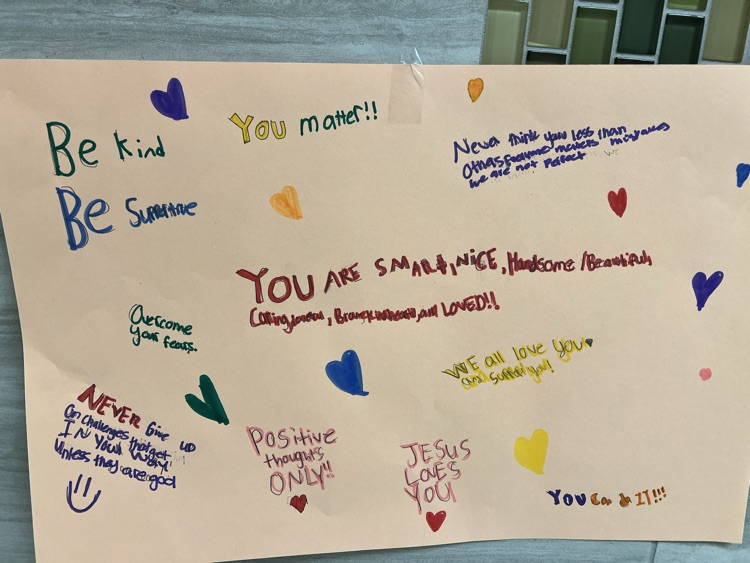 Be kind
You matter!!
Never think your less than
Others Everyone makes mistakes
We are not Perfect
Be Supportive
YOU ARE SMART, NICE, Handsome/Beautiful,
Caring, Brave, and LOVED!!
Overcome
your fears.
WE all love you
and support you!
NEVER Give UP
On challenges that get
IN YOUR WAY!
Unless they are good
POSITIVE
thoughts
ONLY!!
JESUS
LOVES
YOU
YOU Can do IT!!!